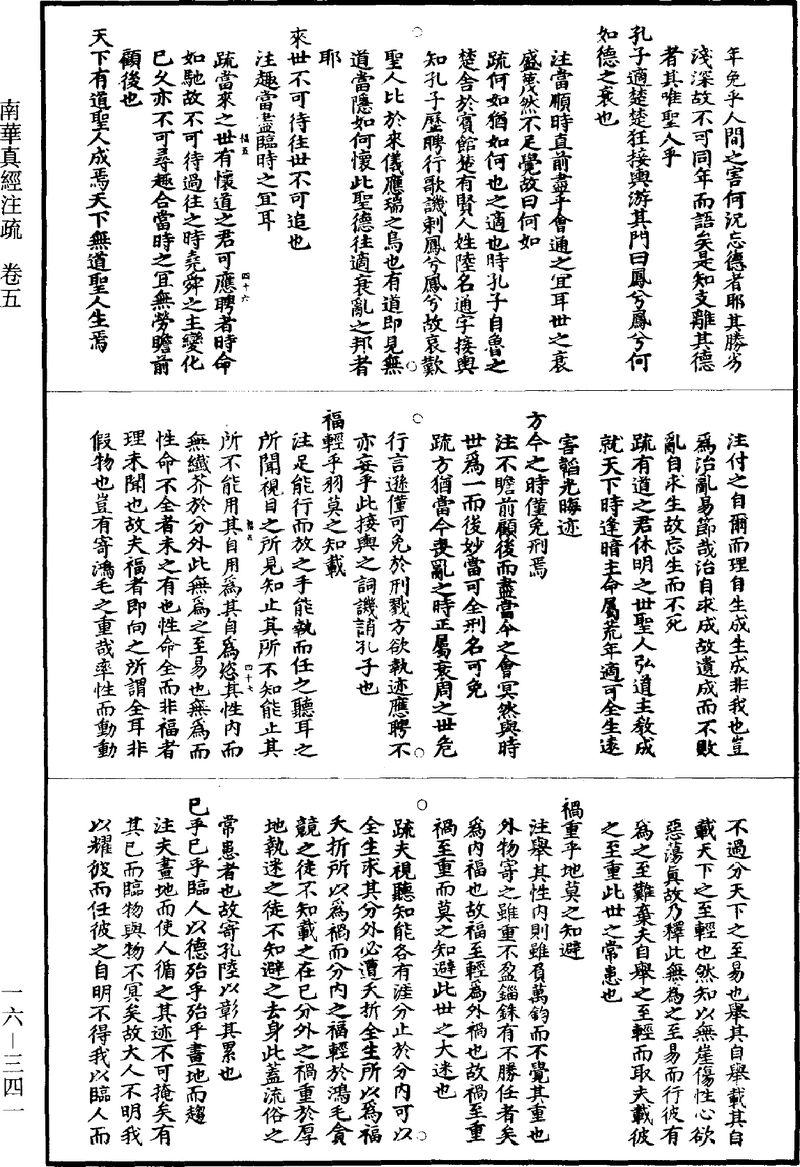 南華真經注疏　卷五
一六—三四一
年免乎人間之害何況忘德者耶其勝劣
淺深故不可同年而語矣是知支離其德
者其唯聖人乎
孔子適楚楚狂接輿游其門曰鳳兮鳳兮何
如德之衰也
注當順時直前盡乎會通之宜耳世之衰
盛蔑然不足覺故曰何如
疏何如猶如何也之適也時孔子自魯之
楚舍於賓館楚有賢人姓陸名通字接輿
知孔子歷聘行歌譏刺鳳兮鳳兮故哀歎
聖人比於來儀應瑞之鳥也有道即見無
道當隱如何懷此聖德往適衰亂之邦者
耶
來世不可待往世不可追也
注趣當盡臨時之宜耳
疏當來之世有懷道之君可應聘者時命
如馳故不可待過往之時堯舜之主變化
已久亦不可尋趣合當時之宜無勞瞻前
顧後也
天下有道聖人成焉天下無道聖人生焉
注付之自爾而理自生成生成非我也豈
為治亂易節哉治自求成故遺成而不敗
亂自求生故忘生而不死
疏有道之君休明之世聖人弘道主教成
就天下時逢暗主命屬荒年適可全生遠
害韜光晦迹
方今之時僅免刑焉
注不瞻前顧後而盡當今之會冥然與時
世為一而後妙當可全刑名可免
疏方猶當今喪亂之時正屬衰周之世危
行言遜僅可免於刑戮方欲執迹應聘不
亦妄乎此接輿之詞譏誚孔子也
福輕乎羽莫之知載
注足能行而放之手能執而任之聽耳之
所聞視目之所見知止其所不知能止其
所不能用其自用為其自為恣其性內而
無纖芥於分外此無為之至易也無為而
性命不全者未之有也性命全而非福者
理未聞也故夫福者即向之所謂全耳非
假物也豈有寄鴻毛之重哉率性而動動
不過分天下之至易也舉其自舉載其自
載天下之至輕也然知以無崖傷性心欲
惡蕩真故乃釋此無為之至易而行彼有
為之至難棄夫自舉之至輕而取夫載彼
之至重此世之常患也
禍重乎地莫之知避
注舉其性內則雖負萬鈞而不覺其重也
外物寄之雖重不盈錙銖有不勝任者矣
為內福也故福至輕為外禍也故禍至重
禍至重而莫之知避此世之大迷也
疏夫視聽知能各有涯分止於分內可以
全生求其分外必遭夭折全生所以為福
夭折所以為禍而分內之福輕於鴻毛貪
競之徒不知載之在已分外之禍重於厚
地執迷之徒不知避之去身此蓋流俗之
常患者也故寄孔陸以彰其累也
已乎已乎臨人以德殆乎殆乎畫地而趨
注夫畫地而使人循之其迹不可掩矣有
其已而臨物與物不冥矣故大人不明我
以耀彼而任彼之自明不得我以臨人而